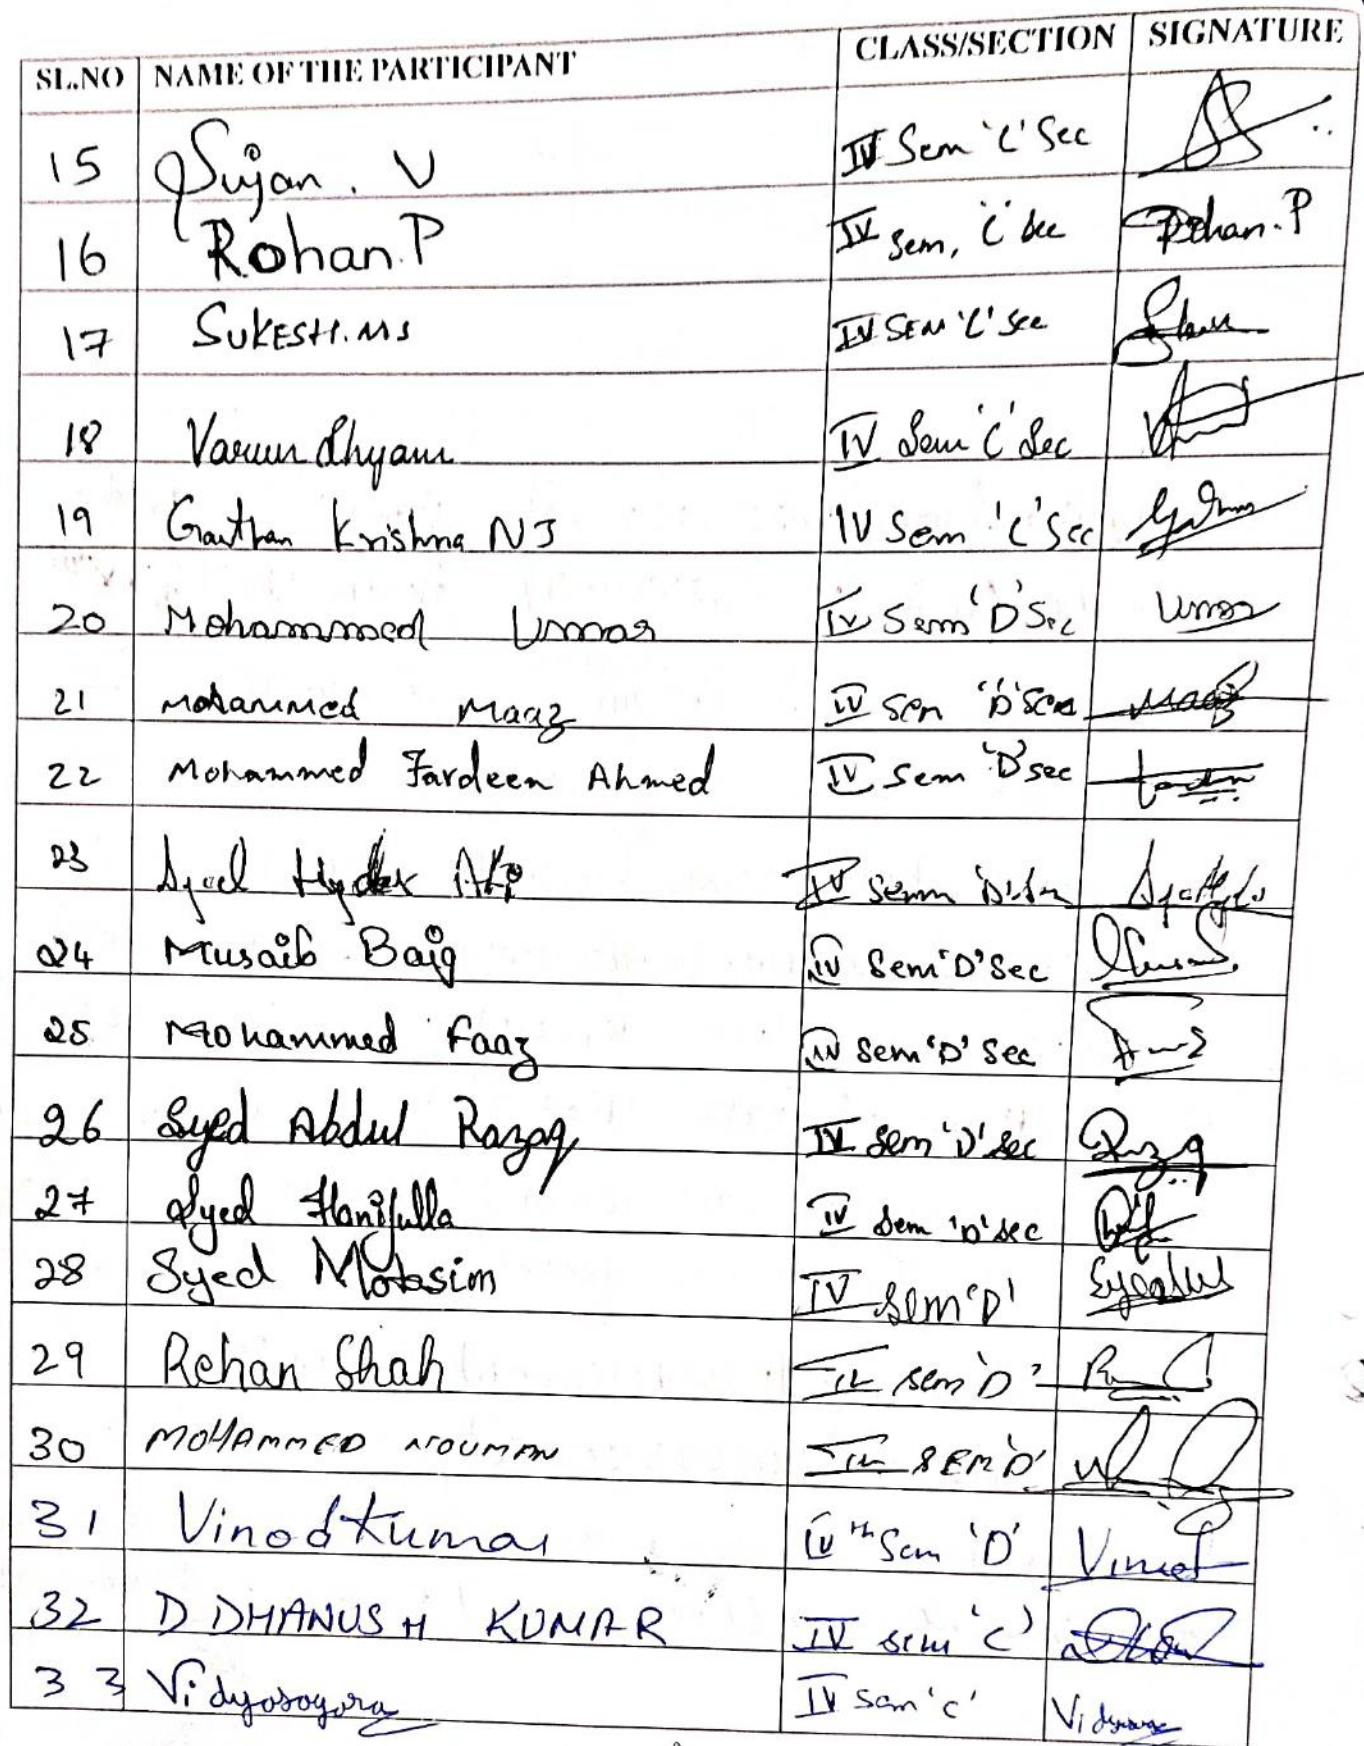 SL.NO NAME OF THE PARTICIPANT CLASS/SECTION SIGNATURE
15 Sujan. V IV Sem 'C' Sec
16 Rohan.P IV Sem, 'C' Sec Rohan.P
17 SUKESH.MS IV SEM 'C' Sec
18 Varun dhyam IV Sem 'C' Sec
19 Gauthan Krishna NJ IV Sem 'C' Sec
20 Mohammed Umar IV Sem 'D' Sec Umar
21 Mohammed Maaz IV Sem 'D' Sem Maaz
22 Mohammed Fardeen Ahmed IV Sem 'D' sec
23 Syed Hyder Ali IV Semm 'D'
24 Musaib Baig IV Sem 'D' Sec
25 Mohammed Faaz IV Sem 'D' Sec
26 Syed Abdul Razaq IV Sem 'D' Sec Razaq
27 Syed Hanifulla IV Sem 'D' sec
28 Syed Motasim IV Sem 'D'
29 Rehan Shah IV Sem 'D'
30 MOHAMMED NOUMAN IV SEM 'D'
31 Vinod Kumar IV th Sem 'D' Vinod
32 D DHANUSH KUMAR IV sem 'C'
33 Vidyasagara IV Sem 'C'